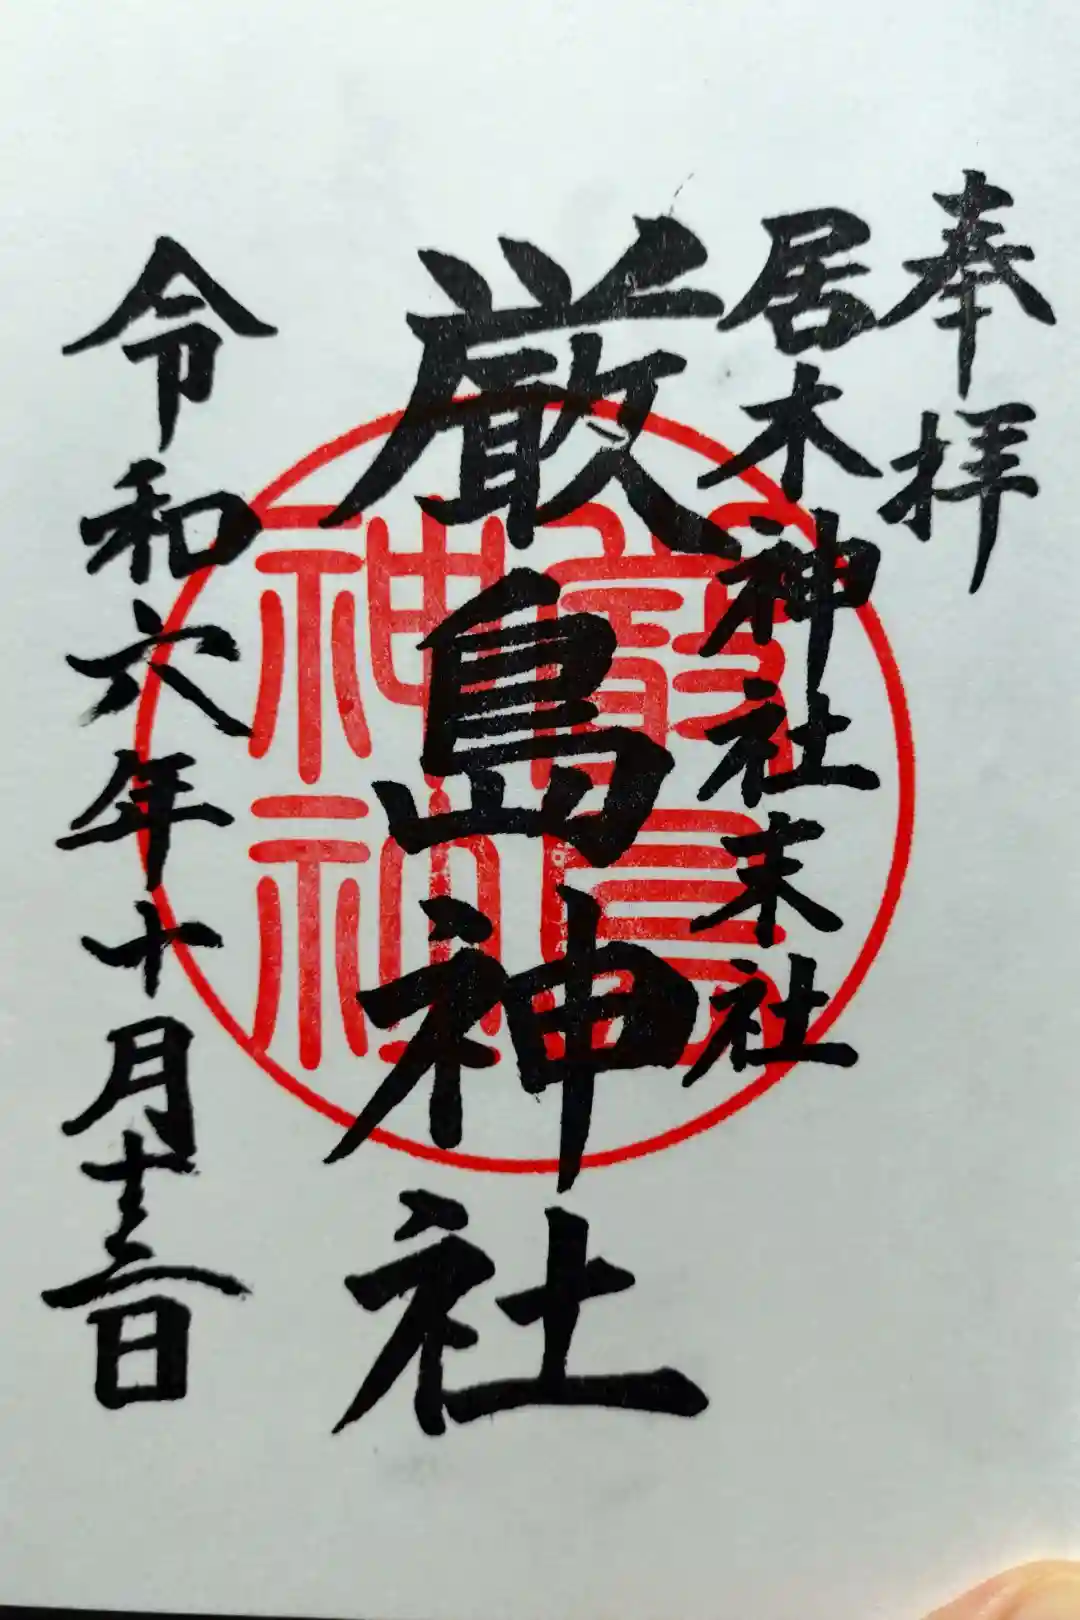 奉拝
居木神社末社
厳島神社
令和六年十月十三日
厳島
神社